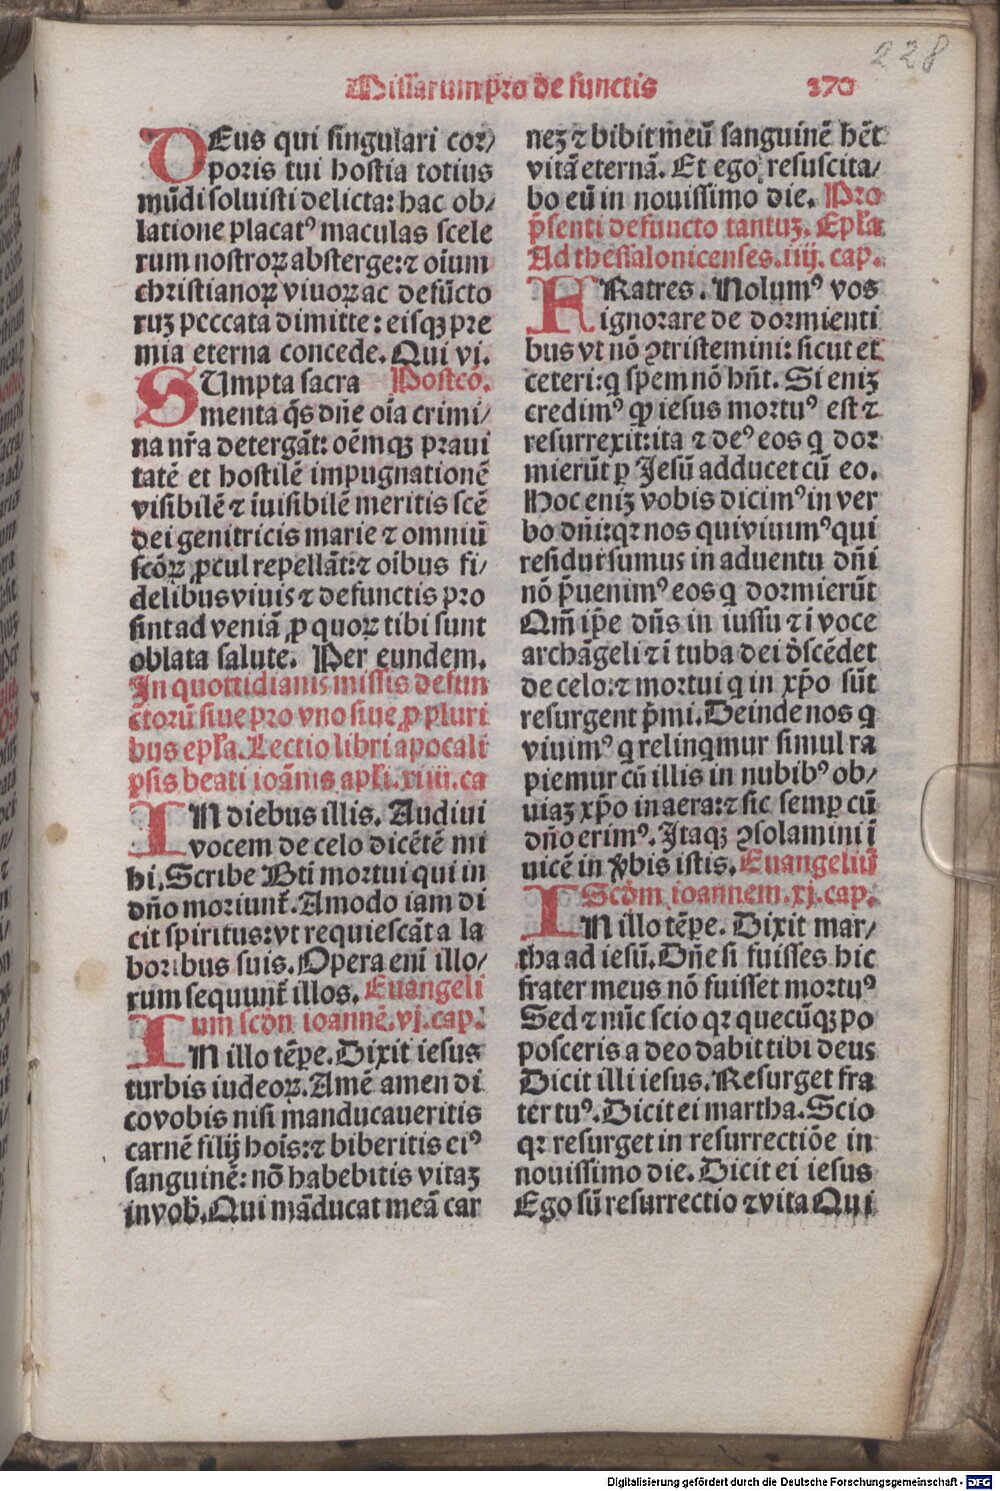 228
Missarum pro defunctis
270
DEus qui singulari cor/
poris tui hostia totius
mūdi soluisti delicta: hac ob/
latione placatꝰ maculas scele
rum nostroꝝ absterge: ⁊ oīum
christianoꝝ viuoꝝ ac defūcto
ruꝫ peccata dimitte: eisqꝫ pre
mia eterna concede. Qui vi.
SUmpta sacra Postcō.
menta q̄s dn̄e oīa crimi/
na nr̄a detergāt: oēmqꝫ praui
tatē et hostilē impugnationē
visibilē ⁊ īuisibilē meritis scē
dei genitricis marie ⁊ omniū
scōꝝ ꝓcul repellāt: ⁊ oībus fi/
delibus viuis ⁊ defunctis pro
sint ad veniā ꝓ quoꝝ tibi sunt
oblata salute. Per eundem.
In quottidianis missis defun
ctorū siue pro vno siue ꝓ pluri
bus epl̄a. Lectio libri apocali
psis beati ioānis apl̄i. xiiii. ca
IN diebus illis. Audiui
vocem de celo dicētē mi
hi. Scribe Bt̄i mortui qui in
dn̄o moriunt̄. Amodo iam di
cit spiritus: vt requiescāt a la
boribus suis. Opera eni̅ illo/
rum sequunt̄ illos. Euangeli
um scd̄n ioannē. vj. cap.
IN illo tēpe. Dixit iesus
turbis iudeoꝝ. Amē amen di
co vobis nisi manducaueritis
carnē filij hoīs: ⁊ biberitis eiꝰ
sanguinē: nō habebitis vitaꝫ
in vob̄. Qui māducat meā car
neꝫ ⁊ bibit meū sanguinē hēt
vitā eternā. Et ego resuscita/
bo eū in nouissimo die. Pro
p̄senti defuncto tantuꝫ. Epl̄a
Ad thessalonicenses. iiij. cap.
FRatres. Nolumꝰ vos
ignorare de dormienti
bus vt nō ꝯtristemini: sicut et
ceteri: q̄ spem nō hn̄t. Si eniꝫ
credimꝰ ꝙ iesus mortuꝰ est ⁊
resurrexit: ita ⁊ deꝰ eos q̄ dor
mierūt ꝑ Jesū adducet cū eo.
Hoc eniꝫ vobis dicimꝰ in ver
bo dn̄i: qꝛ nos qui viuimꝰ qui
residui sumus in aduentu dn̄i
nō p̄uenimꝰ eos q̄ dormierūt
Qm̄ ip̄e dn̄s in iussu ⁊ ī voce
archāgeli ⁊ ī tuba dei d̄scēdet
de celo: ⁊ mortui q̄ in xp̄o sūt
resurgent p̄mi. Deinde nos q̄
viuimꝰ q̄ relinq̄mur simul ra
piemur cū illis in nubibꝰ ob/
uiaꝫ xp̄o in aera: ⁊ sic semꝑ cū
dn̄o erimꝰ. Itaqꝫ ꝯsolamini ī
uicē in v̄bis istis. Euangeliū
Scd̄m ioannem. xj. cap.
IN illo tēpe. Dixit mar/
tha ad iesū. Dn̄e si fuisses hic
frater meus nō fuisset mortuꝰ
Sed ⁊ nūc scio qꝛ quecūqꝫ po
posceris a deo dabit tibi deus
Dicit illi iesus. Resurget fra
ter tuꝰ. Dicit ei martha. Scio
qꝛ resurget in resurrectiōe in
nouissimo die. Dicit ei iesus
Ego sū resurrectio ⁊ vita Qui
Digitalisierung gefördert durch die Deutsche Forschungsgemeinschaft - DFG